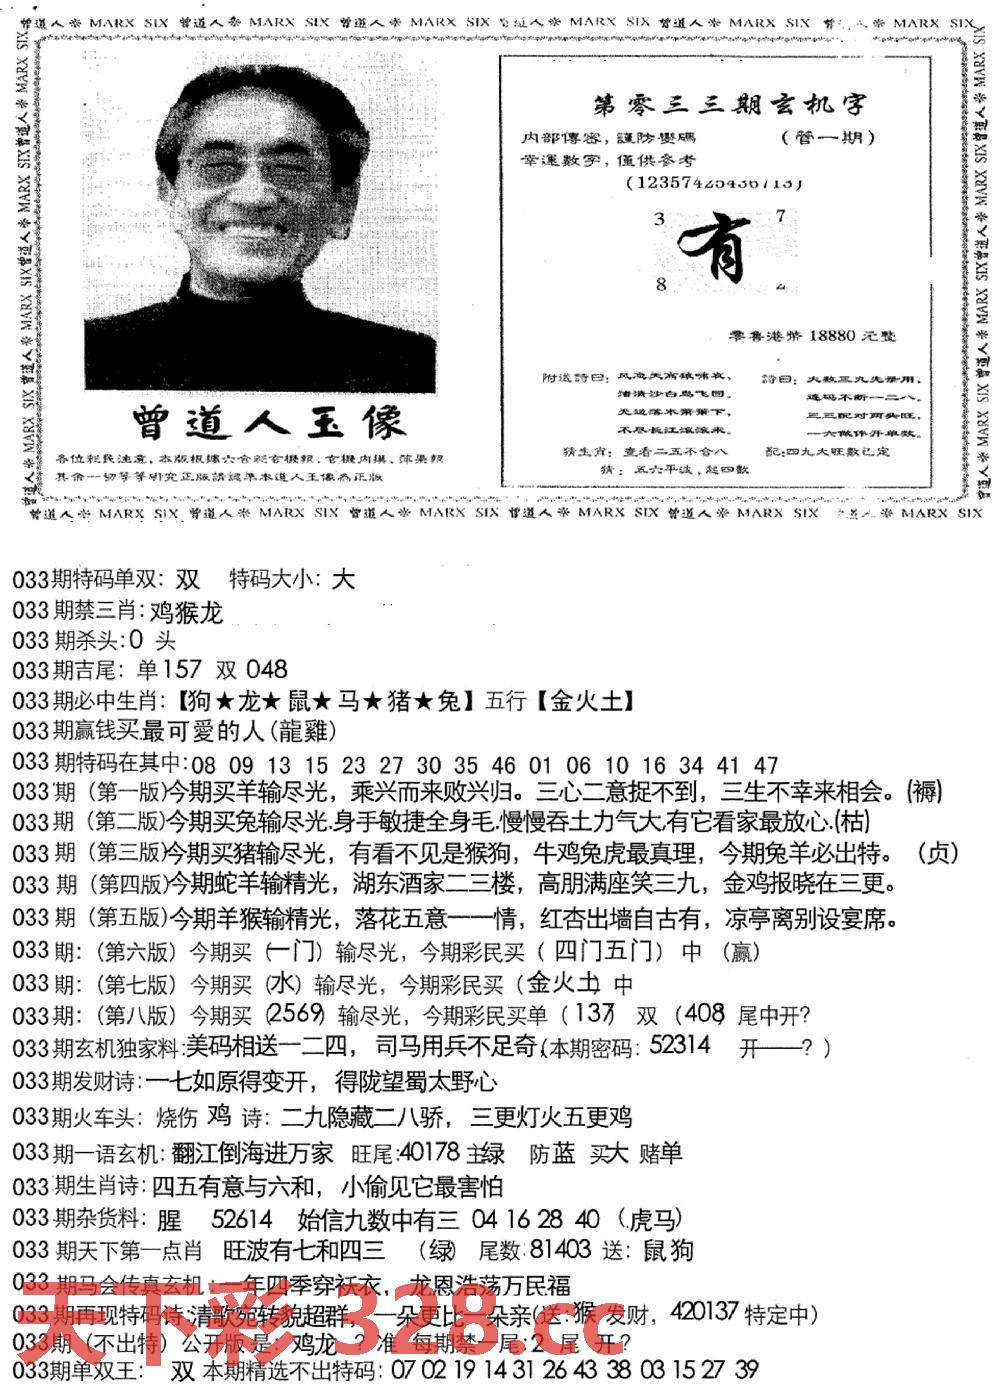 曾道人※ MARX SIX 曾道人※ MARX SIX 曾道人※ MARX SIX 曾道人※ MARX SIX 曾道人※ MARX SIX 曾道人※ MARX SIX
第零三三期玄机字
内部傳密，謹防變碼 (管一期)
幸運數字，僅供參考
3 7
有
8
零售港幣 18880 元整
附送詩曰：风急天高猿啸哀，
渚清沙白鸟飞回。
无边落木萧萧下，
不尽长江滚滚来。
詩曰：头数三九先录用，
连码不断一二八。
三三配对两头旺，
一六做伴开单数。
猜生肖：查看二五不合八 配：四九大旺數已定
猜：五六平波，起四數
曾道人玉像
各位彩民注意，本版根據六合彩玄機報、玄機内撰、蘋果報
其余一切等等研究正版請認準本道人玉像為正版
曾道人※ MARX SIX 曾道人※ MARX SIX 曾道人※ MARX SIX 曾道人※ MARX SIX 曾道人※ MARX SIX 曾道人※ MARX SIX
033期特码单双：双 特码大小：大
033期禁三肖：鸡猴龙
033期杀头：0 头
033期吉尾：单157 双 048
033期必中生肖：【狗★龙★鼠★马★猪★兔】五行【金火土】
033期赢钱买.最可愛的人(龍雞)
033期特码在其中:08 09 13 15 23 27 30 35 46 01 06 10 16 34 41 47
033期（第一版)今期买羊输尽光，乘兴而来败兴归。三心二意捉不到，三生不幸来相会。(褥)
033期（第二版)今期买兔输尽光.身手敏捷全身毛.慢慢吞土力气大,有它看家最放心.(枯)
033期（第三版)今期买猪输尽光，有看不见是猴狗，牛鸡兔虎最真理，今期兔羊必出特。（贞）
033期（第四版)今期蛇羊输精光，湖东酒家二三楼，高朋满座笑三九，金鸡报晓在三更。
033期（第五版)今期羊猴输精光，落花五意一一情，红杏出墙自古有，凉亭离别设宴席。
033期:（第六版）今期买（一门）输尽光，今期彩民买（ 四门五门） 中 （赢）
033期:（第七版）今期买（水）输尽光，今期彩民买（金火土）中
033期:（第八版）今期买（2569）输尽光，今期彩民买单（137） 双 （408）尾中开?
033期玄机独家料:美码相送一二四，司马用兵不足奇.(本期密码: 52314 开一一? )
033期发财诗:一七如原得变开，得陇望蜀太野心
033期火车头: 烧伤 鸡 诗: 二九隐藏二八骄，三更灯火五更鸡
033期一语玄机: 翻江倒海进万家 旺尾:40178 主绿 防蓝 买大 赌单
033期生肖诗: 四五有意与六和，小偷见它最害怕
033期杂货料: 腥 52614 始信九数中有三 04 16 28 40 （虎马）
033期天下第一点肖 旺波有七和四三 （绿） 尾数:81403 送: 鼠狗
033期马会传真玄机：一年四季穿袄衣，龙恩浩荡万民福
033期再现特码诗:清歌宛转貌超群，一朵更比一朵亲(送:猴 发财，420137特定中）
033期（不出特）公开版 是: 鸡龙 ? 准 每期禁一尾:2 尾 开?
033期单双王: 双 本期精选不出特码: 07 02 19 14 31 26 43 38 03 15 27 39
天下彩 328.cc